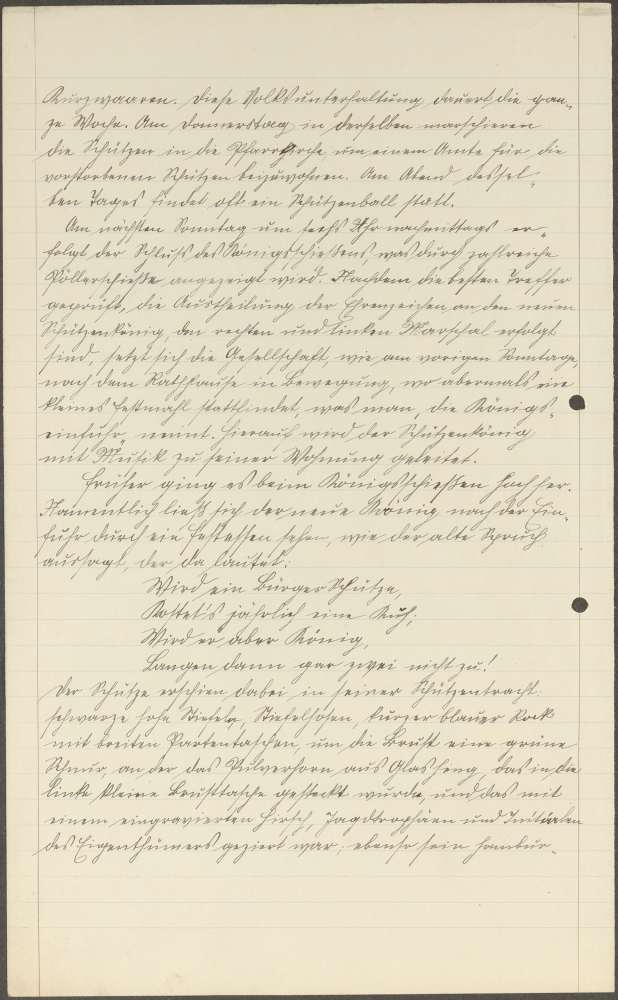 Kurzwaaren. Diese Volksunterhaltung dauert die gan-
ze Woche. Am Donnerstag in derselben marschieren
die Schützen in die Pfarrkirche, um einem Amte für die
verstorbenen Schützen beizuwohnen. Am Abend dessel-
ben Tages findet oft ein Schützenball statt.
Am nächsten Sonntag um sechs Uhr nachmittags er-
folgt der Schluß des Königsschießens, was durch zahlreiche
Pöllerschüsse angezeigt wird. Nachdem die besten Treffer
geprüft, die Austheilung der Ehrenzeichen an den neuen
Schützenkönig, den rechten und linken Marschal erfolgt
sind, setzt sich die Gesellschaft, wie am vorigen Sonntage,
nach dem Rathhause in Bewegung, wo abermals ein
kleines Festmahl stattfindet, was man „die Königs-
einfuhr“ nennt. Hierauf wird der Schützenkönig
mit Musik zu seiner Wohnung geleitet.
Früher ging es beim Königsschießen hoch her.
Namentlich ließ sich der neue König nach der Ein-
fuhr durch ein Festessen sehen, wie der alte Spruch
aussagt, der da lautet:
Wird ein Bürger Schütze,
Kostet's jährlich eine Kuh;
Wird er aber König,
Langen dann gar zwei nicht zu!
Der Schütze erschien dabei in seiner Schützentracht:
schwarze hohe Stiefeln, Stiefelhosen, kurzer blauer Rock
mit breiten Partentaschen, um die Brust eine grüne
Schnur, an der das Pulverhorn aus Glas hieng, das in die
linke kleine Brusttasche gesteckt wurde, und das mit
einem eingravierten Hirsch, Jagdtrophäen und Initialen
des Eigenthümers geziert war; ebenso sein Hambur-